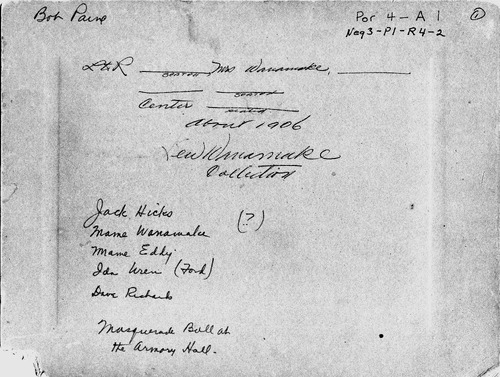 Bob Paine
Por 4-A 1 ①
Neg3-P1-R4-2
L to R ______ Mrs Wanamake, ______
seated
______ seated
Center ______ seated
About 1906
Lew Wanamake
Collection
Jack Hicks (?)
Mame Wanamake
Mame Eddy
Ida Wren (Ford)
Dave Richards
Masquerade Ball at
the Armory Hall.